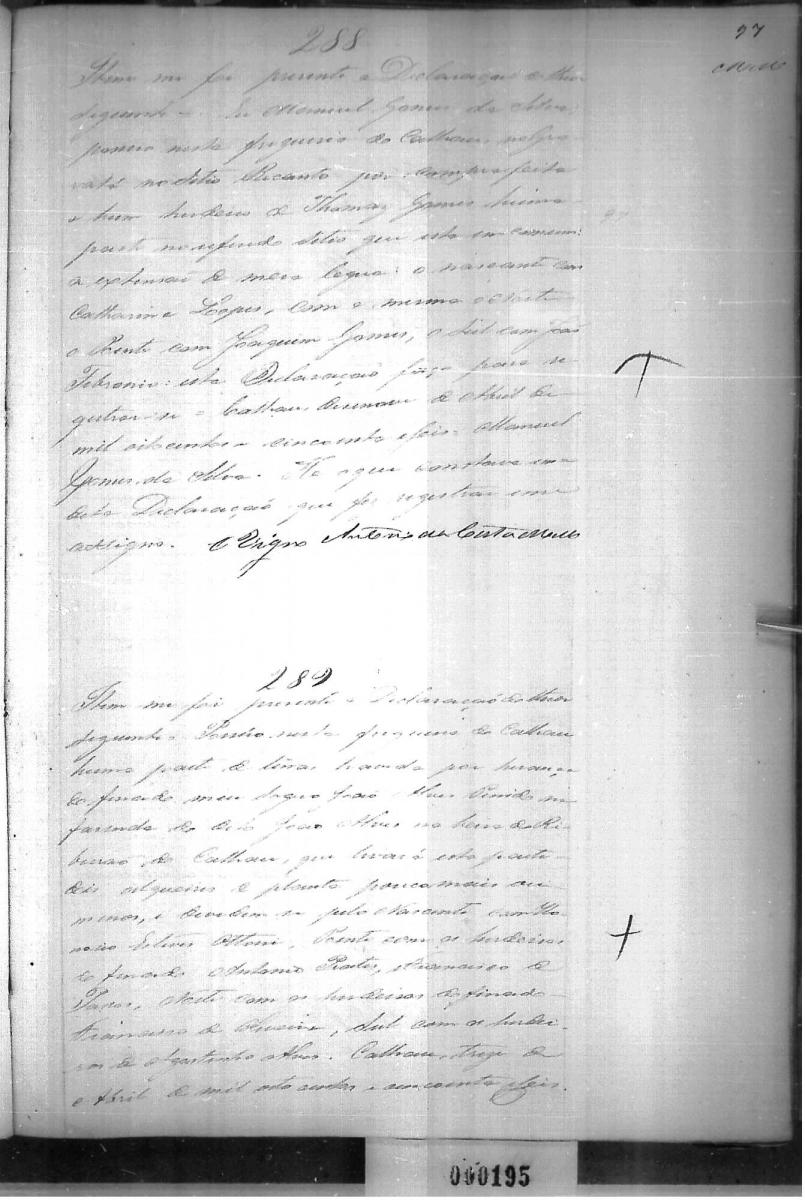 97
288
Item me foi presente a Declaração do theor
seguinte = Eu Manuel Gomes da Silva,
possuo nesta freguesia do Calhau, no
no sitio Recanto por compra feita
a hum herdeiro de Thomaz Gomes huma
parte no referido sitio que esta em commum:
a extensaõ de meia legua: o nascente com
Catharina Lopes, com a mesma o Norte
o Poente com Joaquim Gomes, o Sul com Joaõ
Tebronio: esta Declaração faço para re-
gistrar-se = Calhau desenove de Abril de
mil oitocentos e cincoenta e seis. Manuel
Gomes da Silva. He o que constava em a
dita Declaração que fiz registrar e me
assigno. O Vigro Antonio da Costa Mello
289
Item me foi presente a Declaração do theor
seguinte = Possúo nesta freguesia do Calhau
huma parte de terras havida por herança
do finado meu Sogro João Alves na
fazenda do dito João Alves na beira do Ri-
beirão do Calhau, que levará esta parte
dois alqueires de planta pouco mais ou
menos, e dividem se pelo Nascente com Ho-
norio Esteves Ottoni, Poente com os herdeiros
do finado Antonio Prates, e Francisco de
Norte com os herdeiros do finado
Francisco de Oliveira, Sul com os herdei-
ros de Agostinho Alves. Calhau, treze de
Abril de mil oito centos e cincoenta e seis.
000195